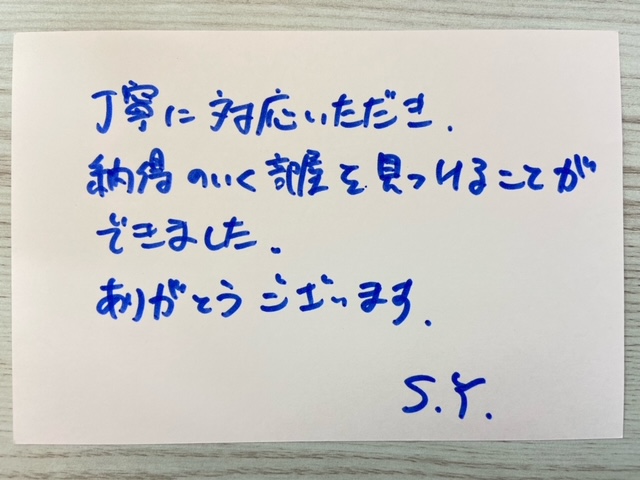 丁寧に対応いただき.
納得のいく部屋を見つけることが
できました.
ありがとうございます.
S.Y.